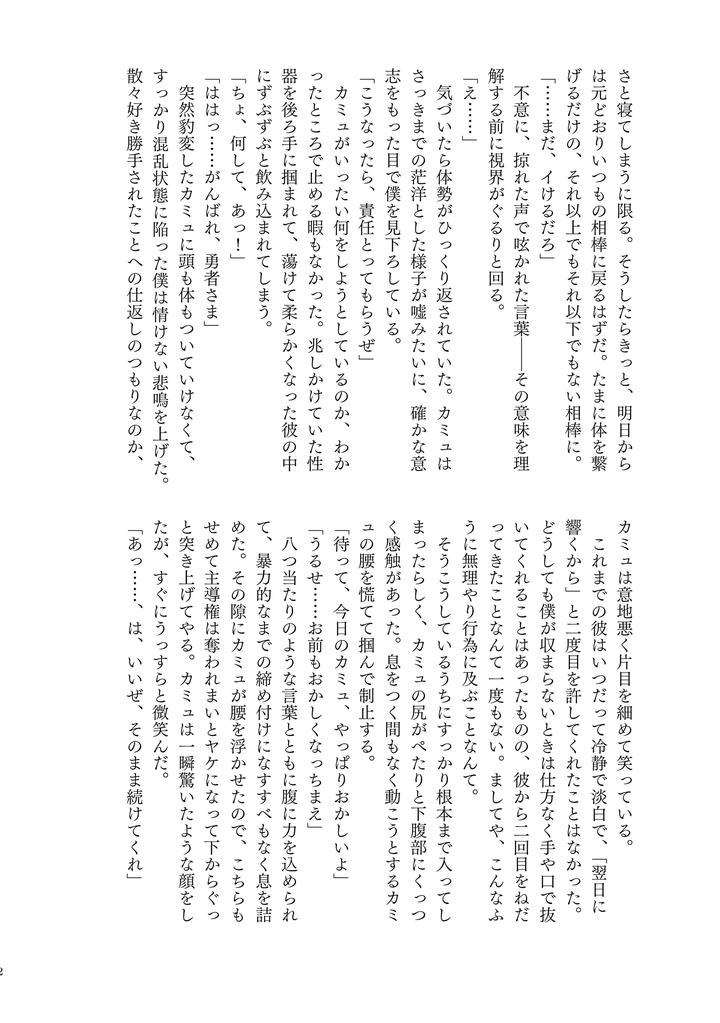 さと寝てしまうに限る。そうしたらきっと、明日から
は元どおりいつもの相棒に戻るはずだ。たまに体を繋
げるだけの、それ以上でもそれ以下でもない相棒に。
「……まだ、イけるだろ」
不意に、掠れた声で呟かれた言葉――その意味を理
解する前に視界がぐるりと回る。
「え……」
気づいたら体勢がひっくり返されていた。カミュは
さっきまでの茫洋とした様子が嘘みたいに、確かな意
志をもった目で僕を見下ろしている。
「こうなったら、責任とってもらうぜ」
カミュがいったい何をしようとしているのか、わか
ったところで止める暇もなかった。兆しかけていた性
器を後ろ手に掴まれて、蕩けて柔らかくなった彼の中
にずぶずぶと飲み込まれてしまう。
「ちょ、何して、あっ！」
「ははっ……がんばれ、勇者さま」
突然豹変したカミュに頭も体もついていけなくて、
すっかり混乱状態に陥った僕は情けない悲鳴を上げた。
散々好き勝手されたことへの仕返しのつもりなのか、
カミュは意地悪く片目を細めて笑っている。
これまでの彼はいつだって冷静で淡白で、「翌日に
響くから」と二度目を許してくれたことはなかった。
どうしても僕が収まらないときは仕方なく手や口で抜
いてくれることはあったものの、彼から二回目をねだ
ってきたことなんて一度もない。ましてや、こんなふ
うに無理やり行為に及ぶことなんて。
そうこうしているうちにすっかり根本まで入ってし
まったらしく、カミュの尻がぺたりと下腹部にくっつ
く感触があった。息をつく間もなく動こうとするカミ
ュの腰を慌てて掴んで制止する。
「待って、今日のカミュ、やっぱりおかしいよ」
「うるせ……お前もおかしくなっちまえ」
八つ当たりのような言葉とともに腹に力を込められ
て、暴力的なまでの締め付けになすすべもなく息を詰
めた。その隙にカミュが腰を浮かせたので、こちらも
せめて主導権は奪われまいとヤケになって下からぐっ
と突き上げてやる。カミュは一瞬驚いたような顔をし
たが、すぐにうっすらと微笑んだ。
「あっ……、は、いいぜ、そのまま続けてくれ」
2